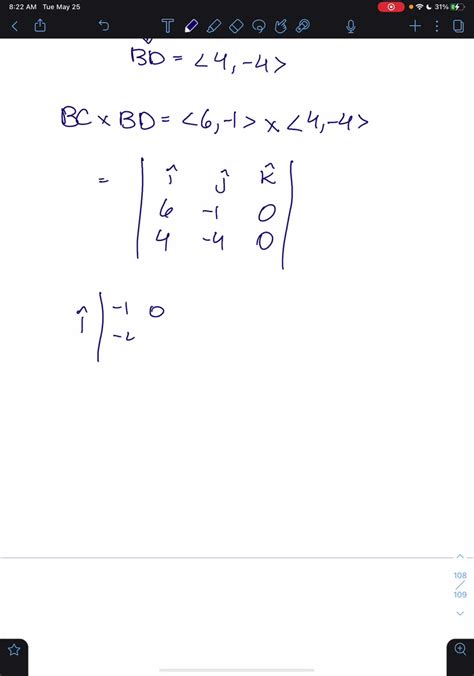 8:22 AM Tue May 25
31%
BD = <4, -4>
BC x BD = <6, -1> x <4, -4>
= | î ĵ k̂ |
6 -1 0
4 -4 0
î | -1 0
108
109